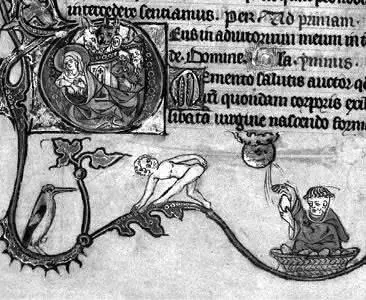 intercedere sentiamus. Per Ad primam.
Eus in adiutorium meum in
de. Domine. Gla. ymnus.
Memento salutis auctor q
nri quondam corporis exil
libata uirgine nascendo form